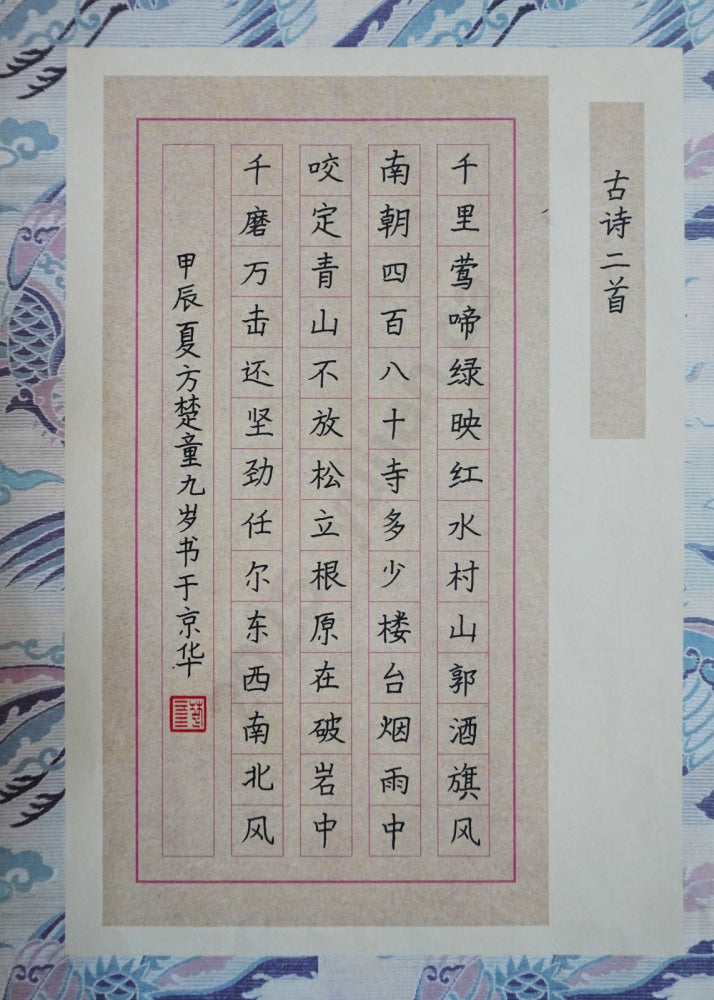 古诗二首
千里莺啼绿映红水村山郭酒旗风
南朝四百八十寺多少楼台烟雨中
咬定青山不放松立根原在破岩中
千磨万击还坚劲任尔东西南北风
甲辰夏方楚童九岁书于京华